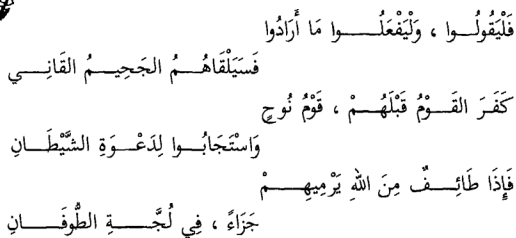 فَلْيَقُولُوا ، وَلْيَفْعَلُوا مَا أَرَادُوا
فَسَيَلْقَاهُمُ الجَحِيمُ القَانِي
كَفَرَ القَوْمُ قَبْلَهُمْ ، قَوْمُ نُوحٍ
وَاسْتَجَابُوا لِدَعْوَةِ الشَّيْطَانِ
فَإِذَا طَائِفٌ مِنَ اللهِ يَرْمِيهِمْ
جَزَاءً ، فِي لُجَّةِ الطُّوفَانِ